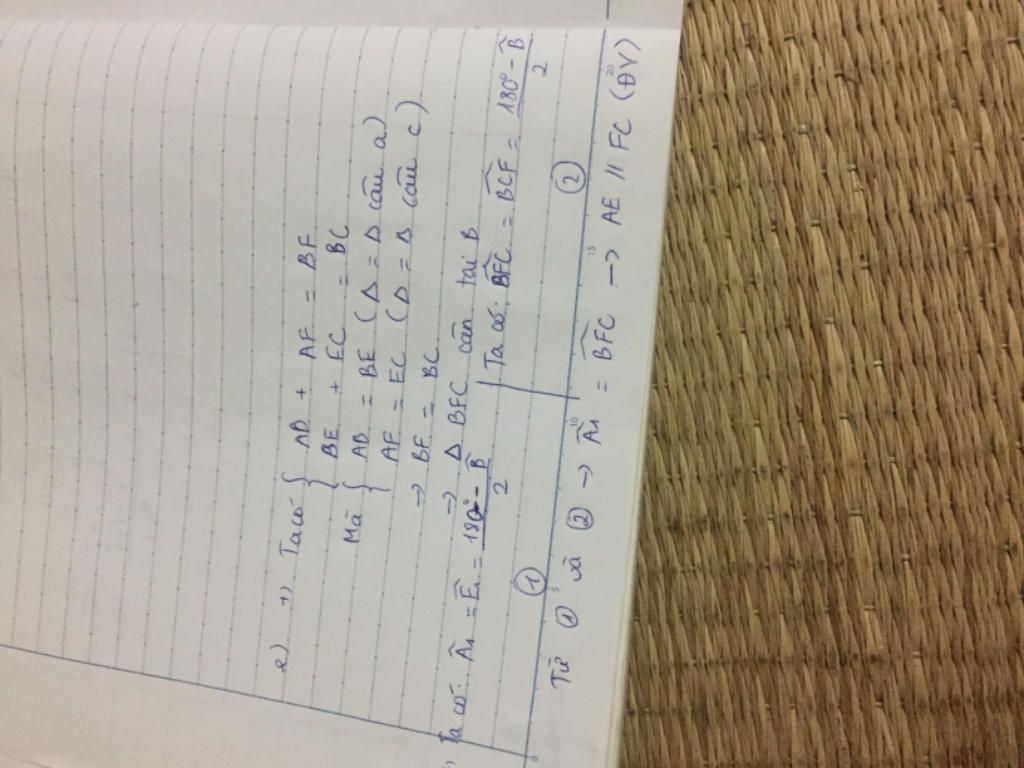 e) +) Ta có { AB + AF = BF
{ BE + EC = BC
Mà { AB = BE (Δ = Δ câu a)
{ AF = EC (Δ = Δ câu c)
→ BF = BC
→ Δ BFC cân tại B
+) Ta có: Â₁ = Ê₁ = (180° - B̂)/2 ① | Ta có: BFC̑ = BCF̑ = (180° - B̂)/2 ②
Từ ① và ② → Â₁ = BFC̑ → AE // FC (ĐV)